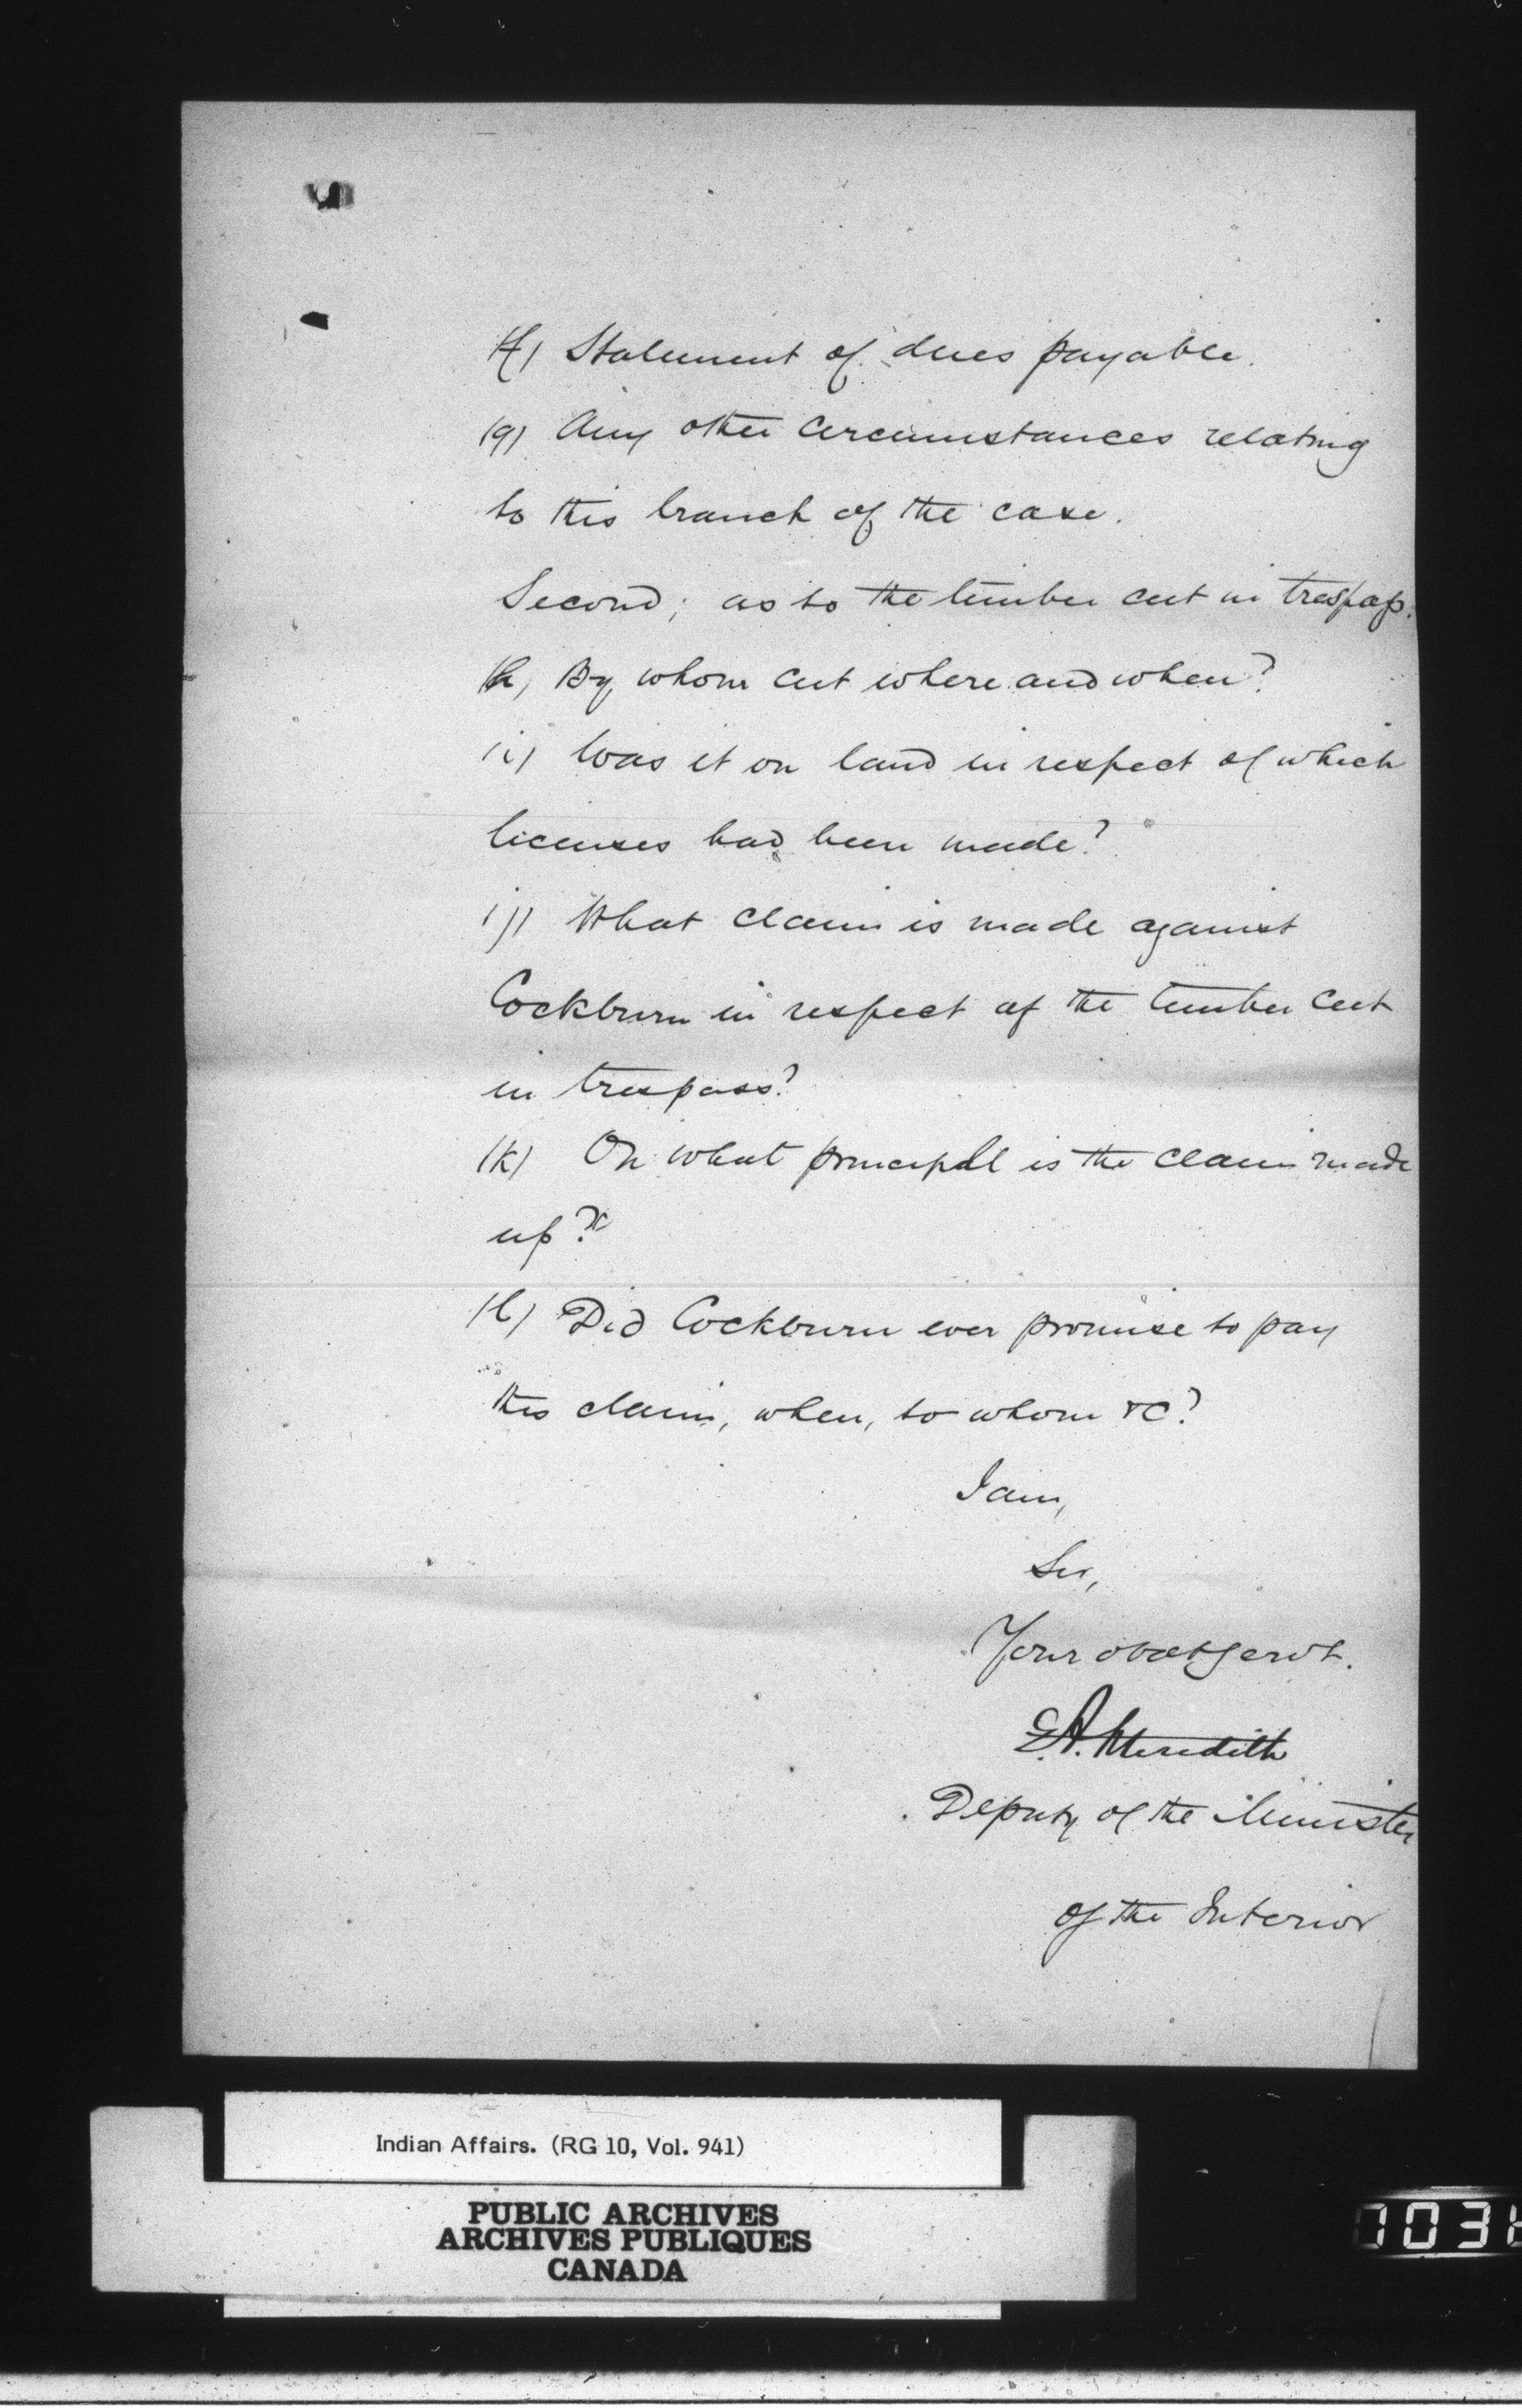 (f) Statement of dues payable.
(g) Any other circumstances relating
to this branch of the case.
Second; as to the timber cut in trespass.
(h) By whom cut where and when?
(i) Was it on land in respect of which
licenses had been made?
(j) What claim is made against
Cockburn in respect of the timber cut
in trespass?
(k) On what principal is the claim made
up?
(l) Did Cockburn ever promise to pay
this claim, when, to whom &c?
I am,
Sir,
Your obedt servt.
E.A. Meredith
Deputy of the Minister
of the Interior
Indian Affairs. (RG 10, Vol. 941)
PUBLIC ARCHIVES
ARCHIVES PUBLIQUES
CANADA